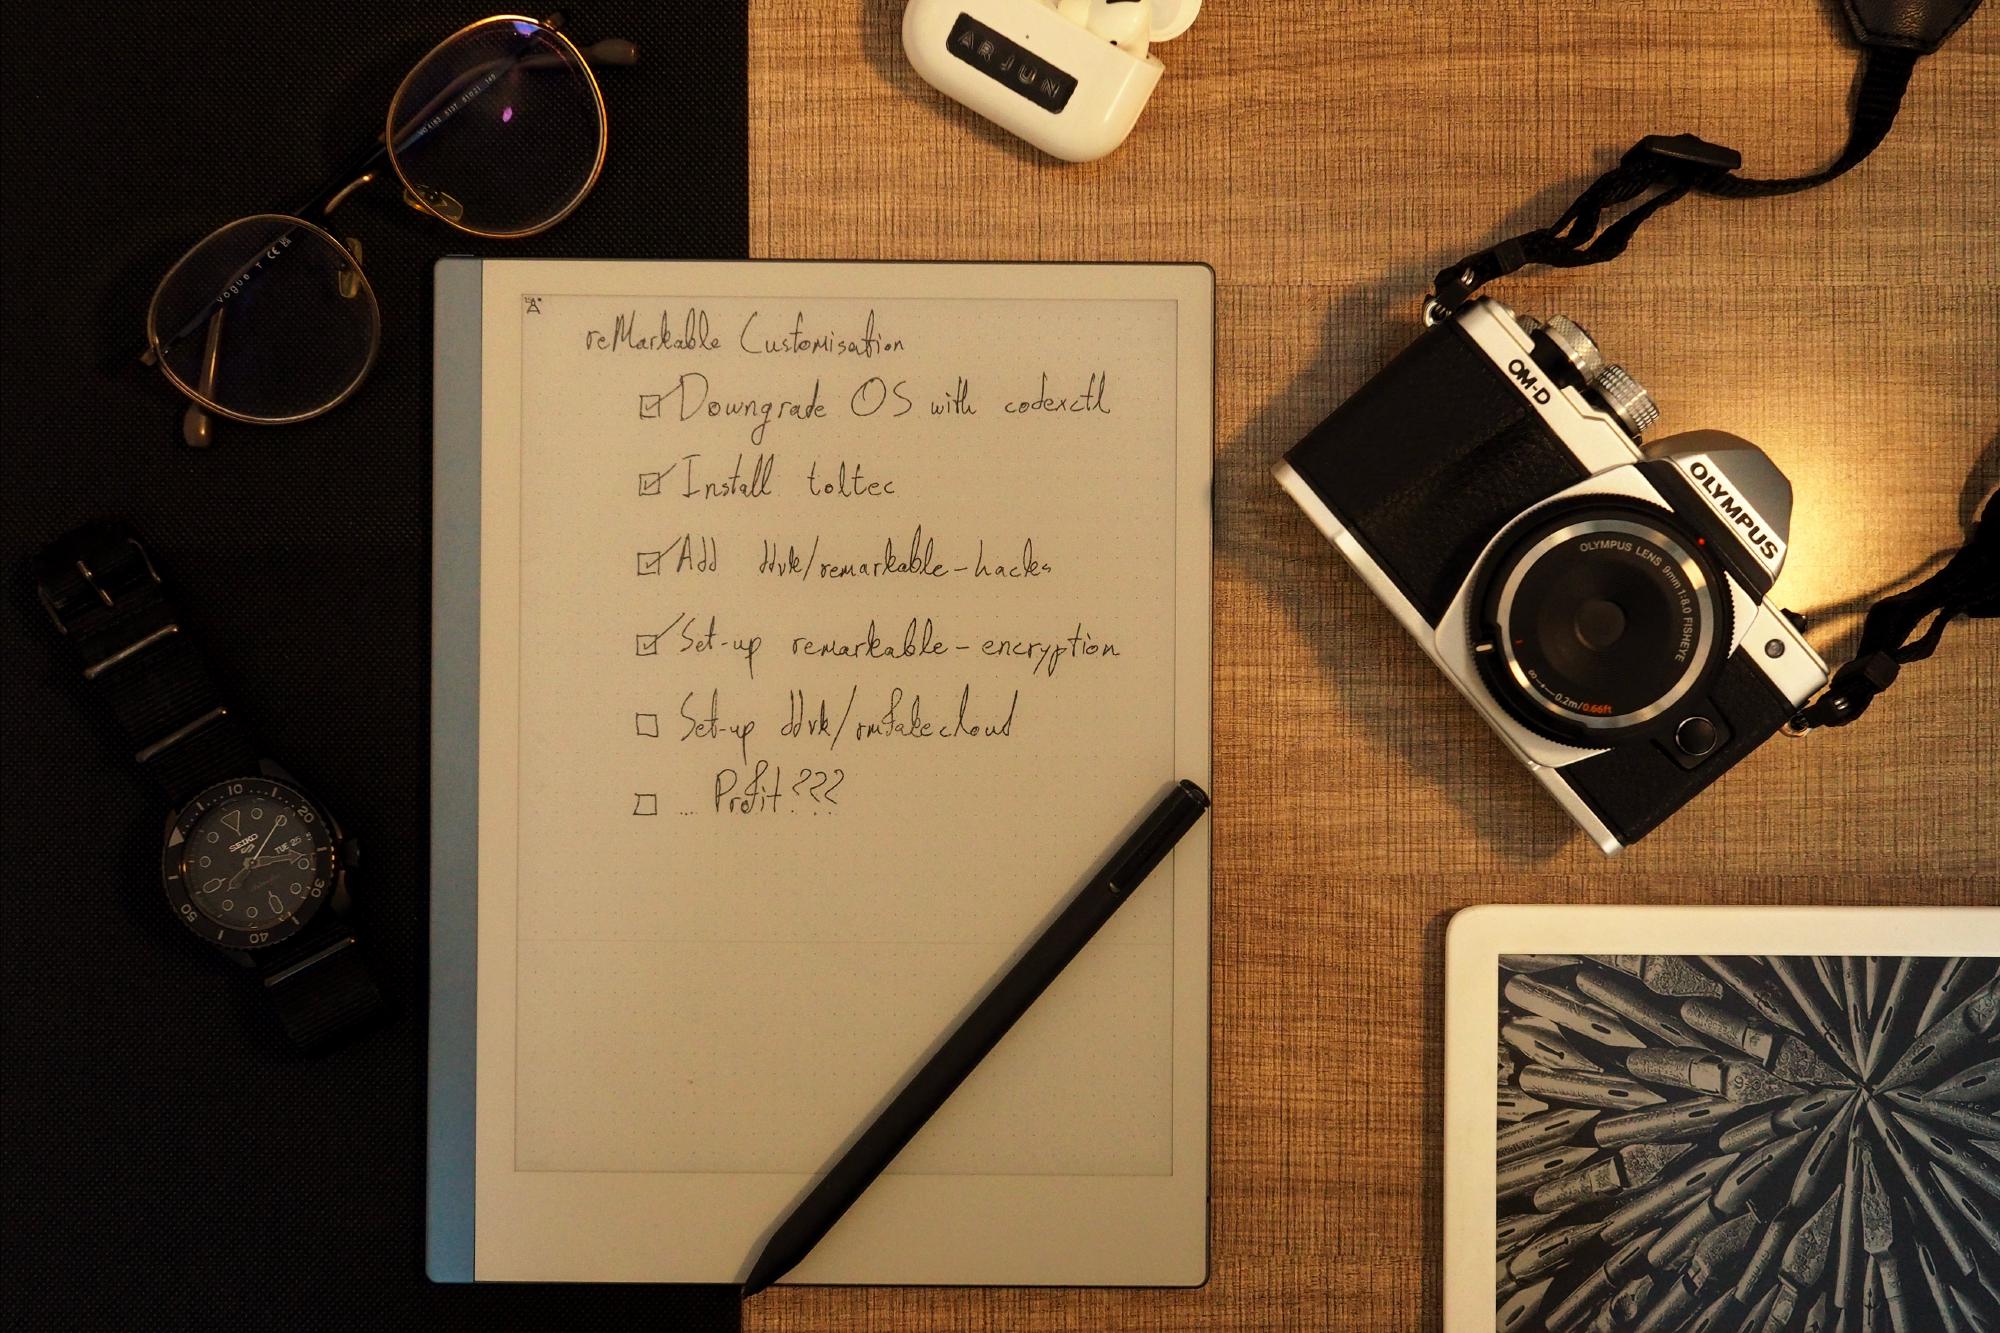 ARJUN
VO4183 5137 51□21 145
vogue T CE
reMarkable Customisation
☑ Downgrade OS with codexctl
☑ Install toltec
☑ Add ddvk/remarkable-hacks
☑ Set-up remarkable-encryption
☐ Set-up ddvk/rmfakecloud
☐ ... Profit???
OM-D
OLYMPUS
OLYMPUS LENS 9mm 1:8.0 FISHEYE
∞ 0.2m/0.66ft
10
20
SEIKO
5
TUE 25
30
40
50